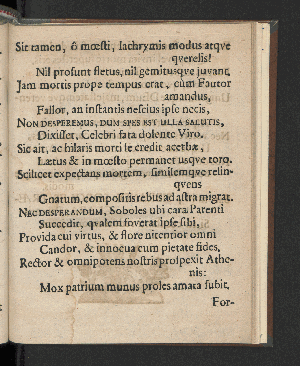 Sit tamen, ô mœsti, lachrymis modus atqve
qverelis!
Nil prosunt fletus, nil gemitusqve juvant.
Jam mortis prope tempus erat, cùm Fautor
amandus,
Fallor, an instantis nescius ipse necis,
NON DESPEREMUS, DUM SPES EST ULLA SALUTIS,
Dixisset, Celebri fata dolente Viro.
Sic ait, ac hilaris morti se credit acerbæ,
Lætus & in mœsto permanet usqve toro.
Scilicet expectans mortem, similemqve relin-
qvens
Gnatum, compositis rebus ad astra migrat.
NEC DESPERANDUM, Soboles ubi cara Parenti
Succedit, qvalem foverat ipse sibi,
Provida cui virtus, & flore nitentior omni
Candor, & innocua cum pietate fides.
Rector & omnipotens nostris prospexit Athe-
nis:
Mox patrium munus proles amata subit.
For-